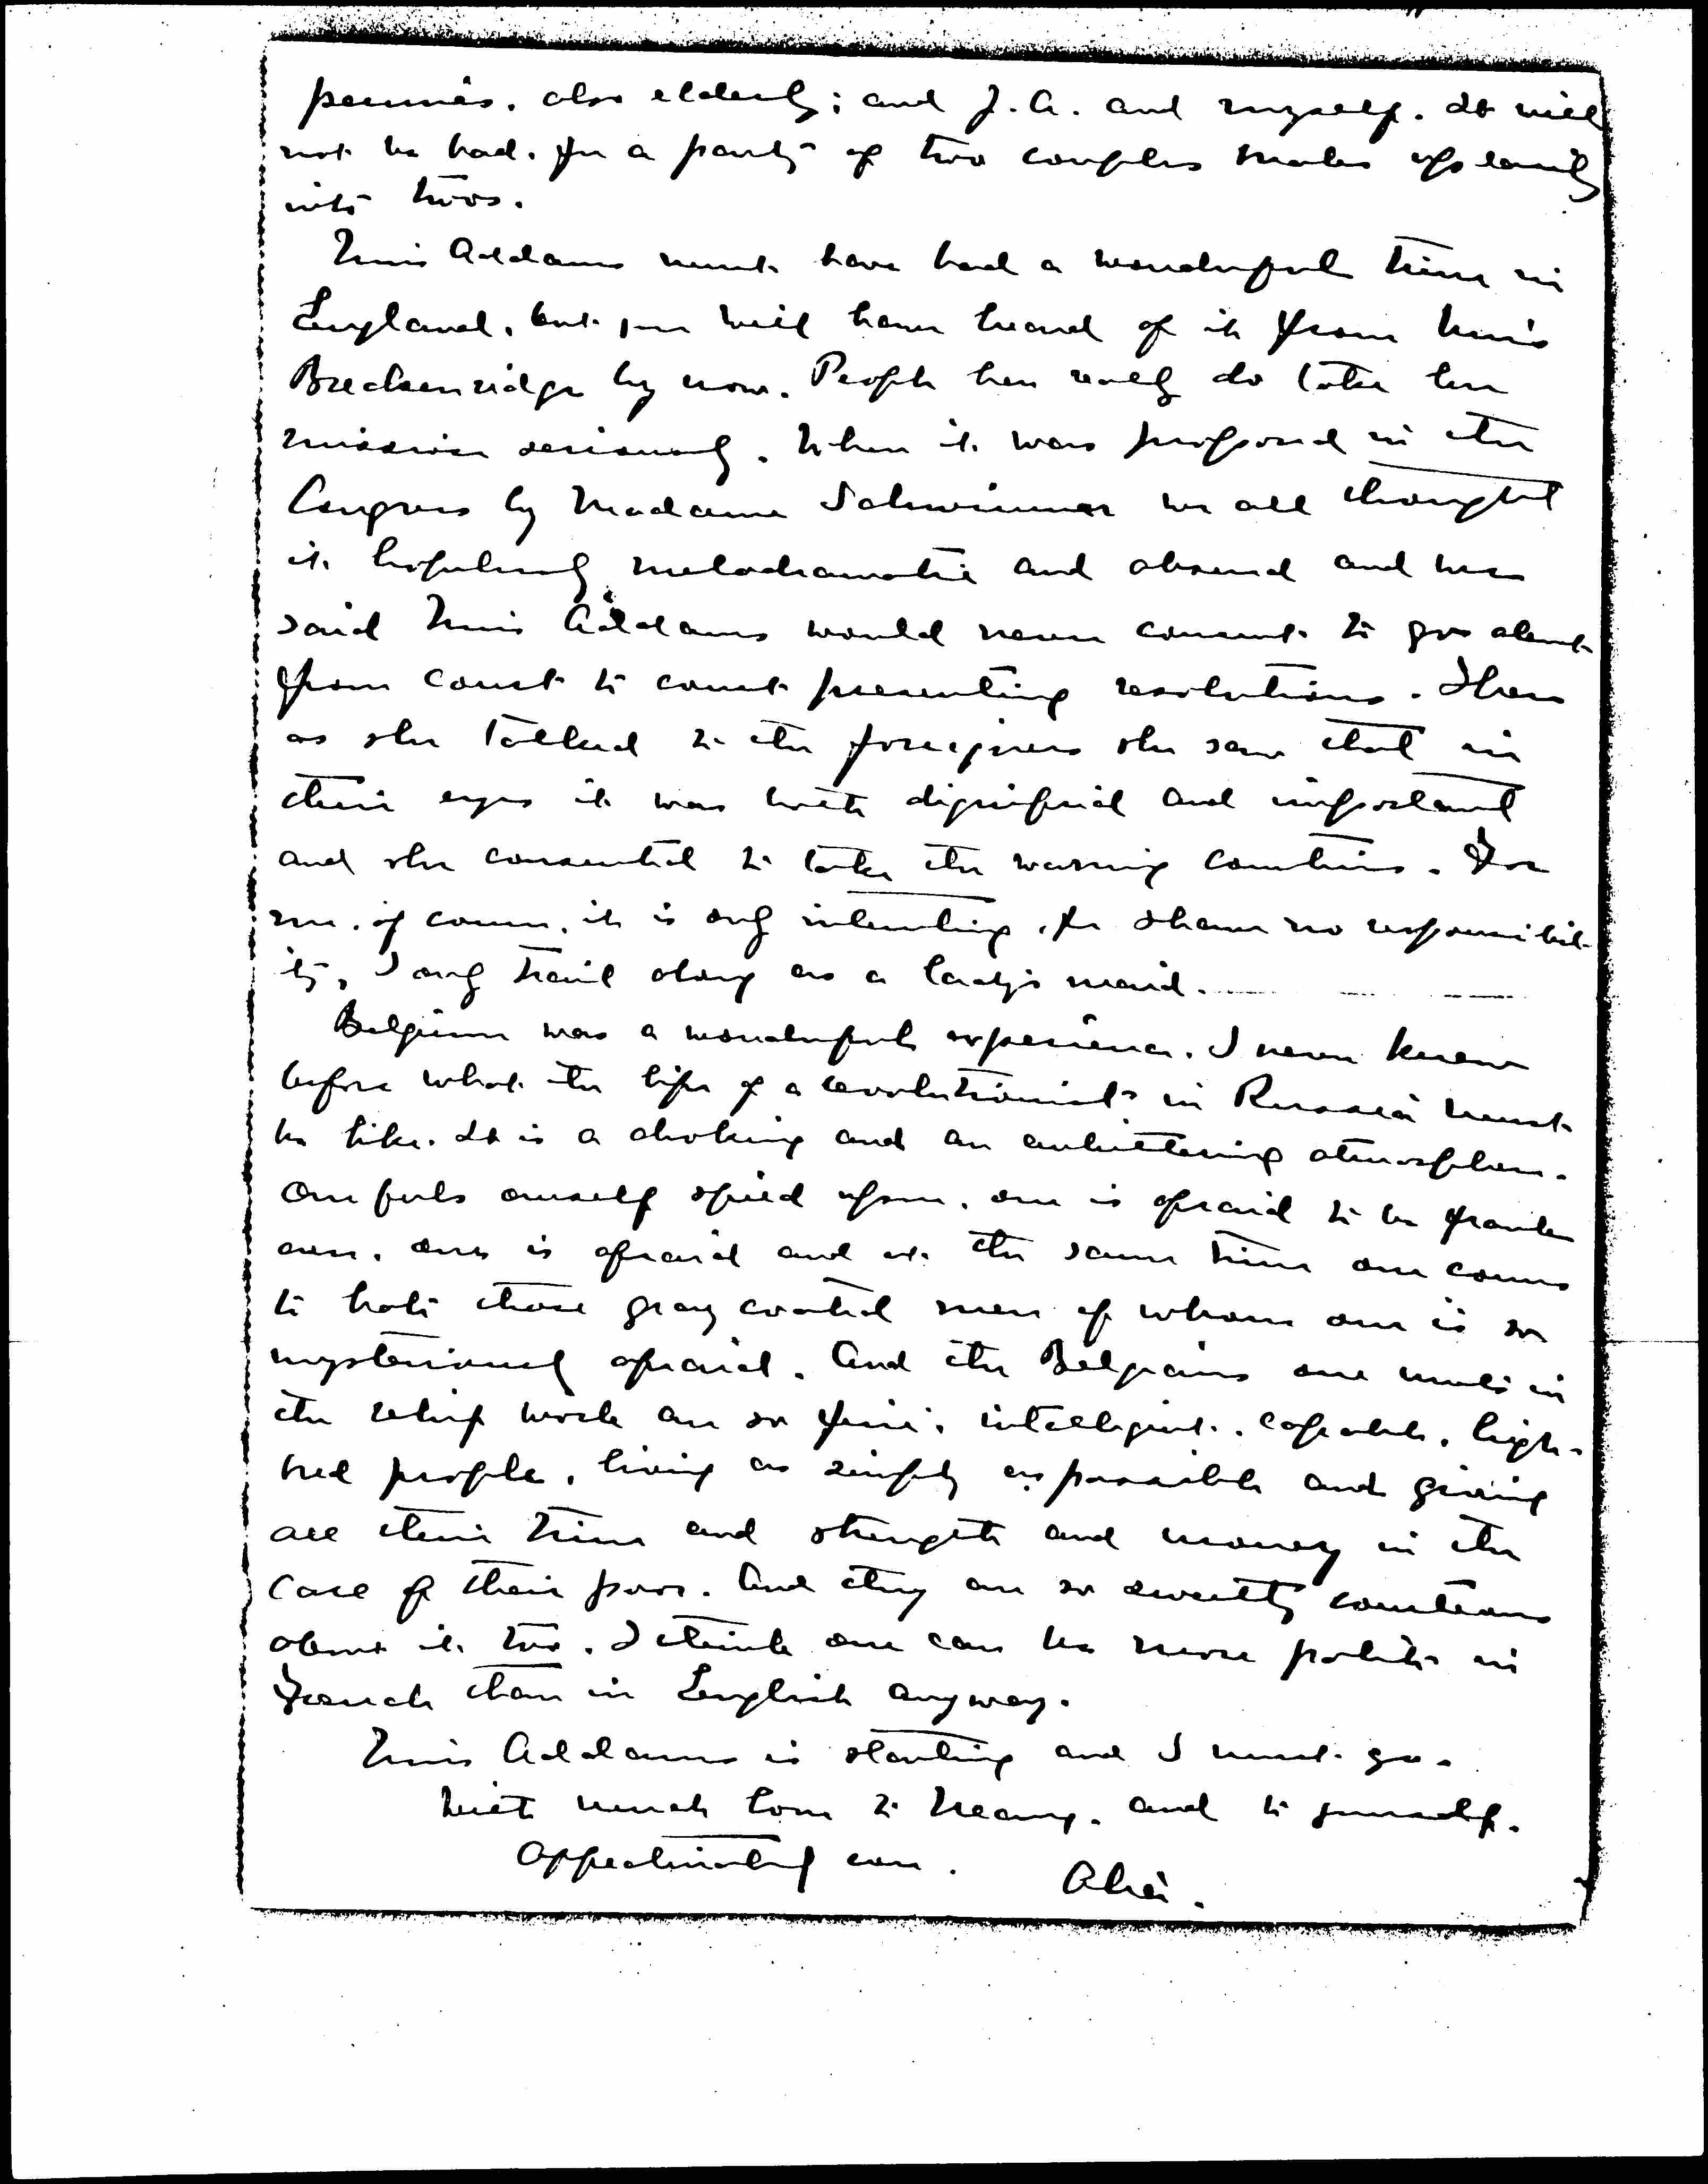 pennies, also elderly; and J.A. and myself. It will
not be bad, for a party of two couples breaks up easily
into twos.
Miss Addams must have had a wonderful time in
England, but you will have heard of it from Miss
Breckenridge by now. People here really do take her
mission seriously. When it was proposed in the
Congress by Madame Schwimmer we all thought
it hopelessly melodramatic and absurd and we
said Miss Addams would never consent to go about
from court to court presenting resolutions. Then
as she talked to the foreigners she saw that in
their eyes it was both dignified and important
and she consented to take the warring countries. For
me, of course, it is only interesting, for I have no responsibil-
ity, I only trail along as a lady's maid.
Belgium was a wonderful experience. I never knew
before what the life of a revolutionist in Russia must
be like. It is a choking and an embittering atmosphere.
One feels oneself spied upon, one is afraid to be frank
ever, one is afraid and at the same time one comes
to hate those gray coated men of whom one is so
mysteriously afraid. And the Belgians one meets in
the relief work are so fine, intelligent, capable, high-
bred people, living as simply as possible and giving
all their time and strength and money in the
care of their poor. And they are so sweetly courteous
about it too. I think one can be more polite in
French than in English anyway.
Miss Addams is starting and I must go.
With much love to Mary, and to yourself.
Affectionately ever.
Alice.